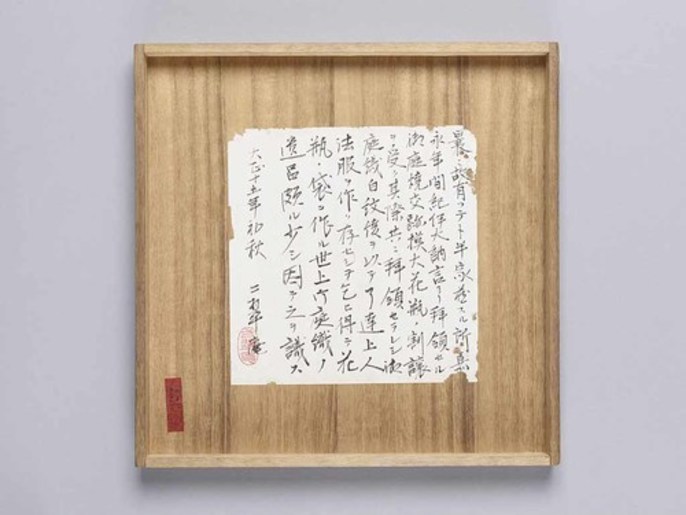 曩ニ故有ツテト半家蔵スル所ノ嘉
永年間紀伊大納言ヨリ拝領セル
御庭焼交趾模大花瓶ヲ割譲
ヲ受ク其際共ニ拝領セラレシ御
庭織白紋綾ヲ以テ了達上人
法服ヲ作リ存セシヲ乞ヒ得テ花
瓶ノ袋ヲ作ル世上御庭織ノ
遺品頗ル少シ因テ之ヲ識ス
大正十五年初秋